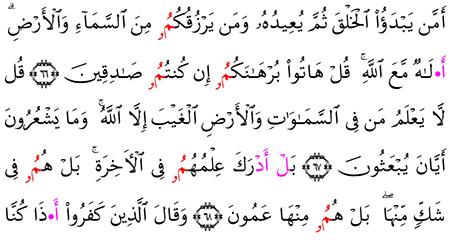 أَمَّن يَبْدَؤُا۟ ٱلْخَلْقَ ثُمَّ يُعِيدُهُۥ وَمَن يَرْزُقُكُمُۥ مِنَ ٱلسَّمَآءِ وَٱلْأَرْضِ ۗ
أَ۬لَـٰهٌ مَّعَ ٱللَّهِ ۚ قُلْ هَاتُوا۟ بُرْهَـٰنَكُمُۥ إِن كُنتُمُۥ صَـٰدِقِينَ ۝٦٦ قُل
لَّا يَعْلَمُ مَن فِى ٱلسَّمَـٰوَٰتِ وَٱلْأَرْضِ ٱلْغَيْبَ إِلَّا ٱللَّهُ ۚ وَمَا يَشْعُرُونَ
أَيَّانَ يُبْعَثُونَ ۝٦٧ بَلْ أَدْرَكَ عِلْمُهُمُۥ فِى ٱلْأَخِرَةِ ۚ بَلْ هُمُۥ فِى
شَكٍّ مِّنْهَا ۖ بَلْ هُمُۥ مِنْهَا عَمُونَ ۝٦٨ وَقَالَ ٱلَّذِينَ كَفَرُوٓا۟ أَ۬ذَا كُنَّا